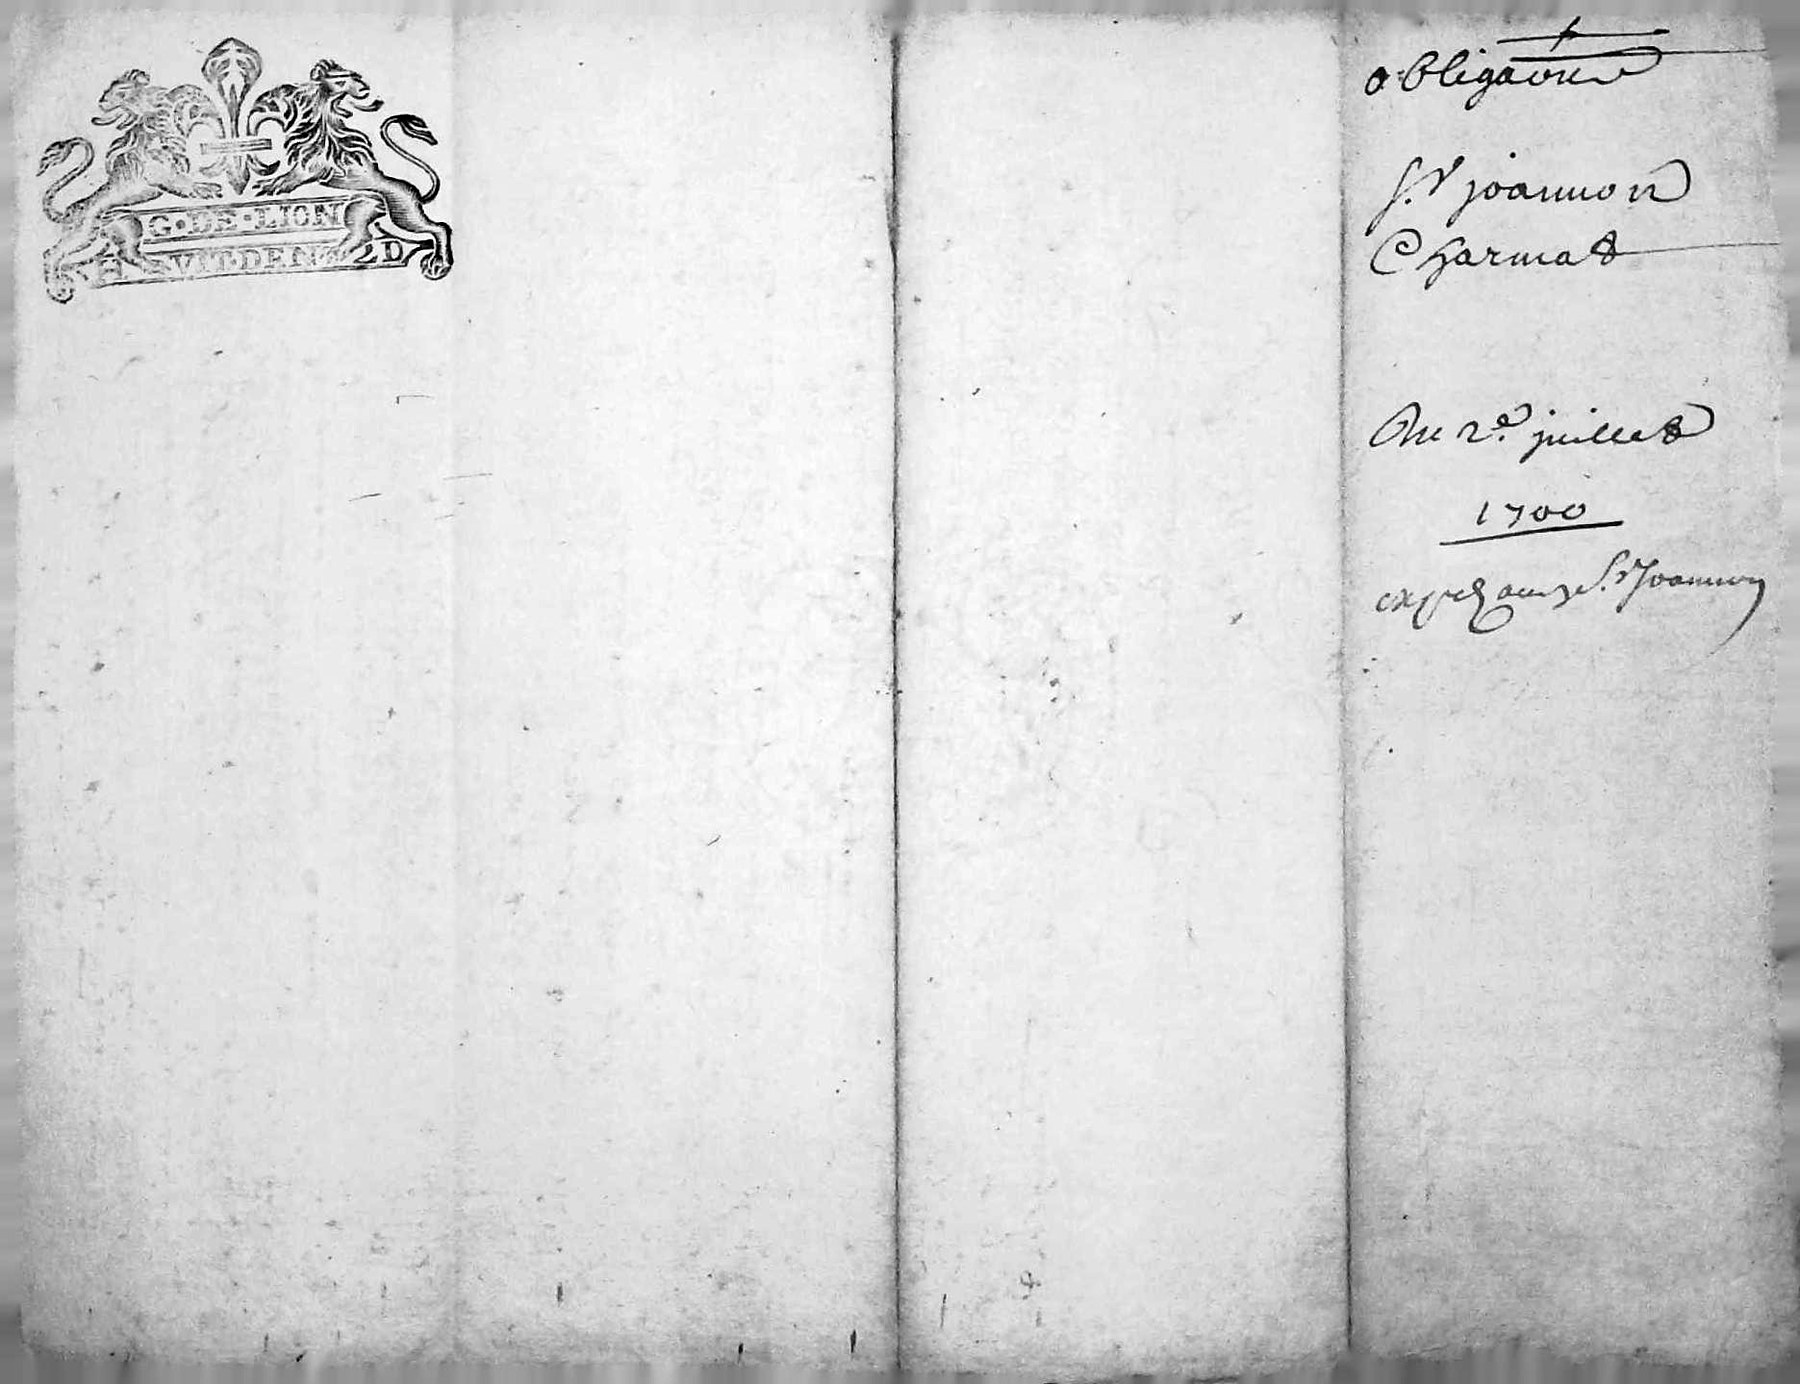 G·DE·LION
HVIT DEN 2D
obligaōn
S.r joannon
Charmat
Du 2e. juillet
1700
S.r Joannon